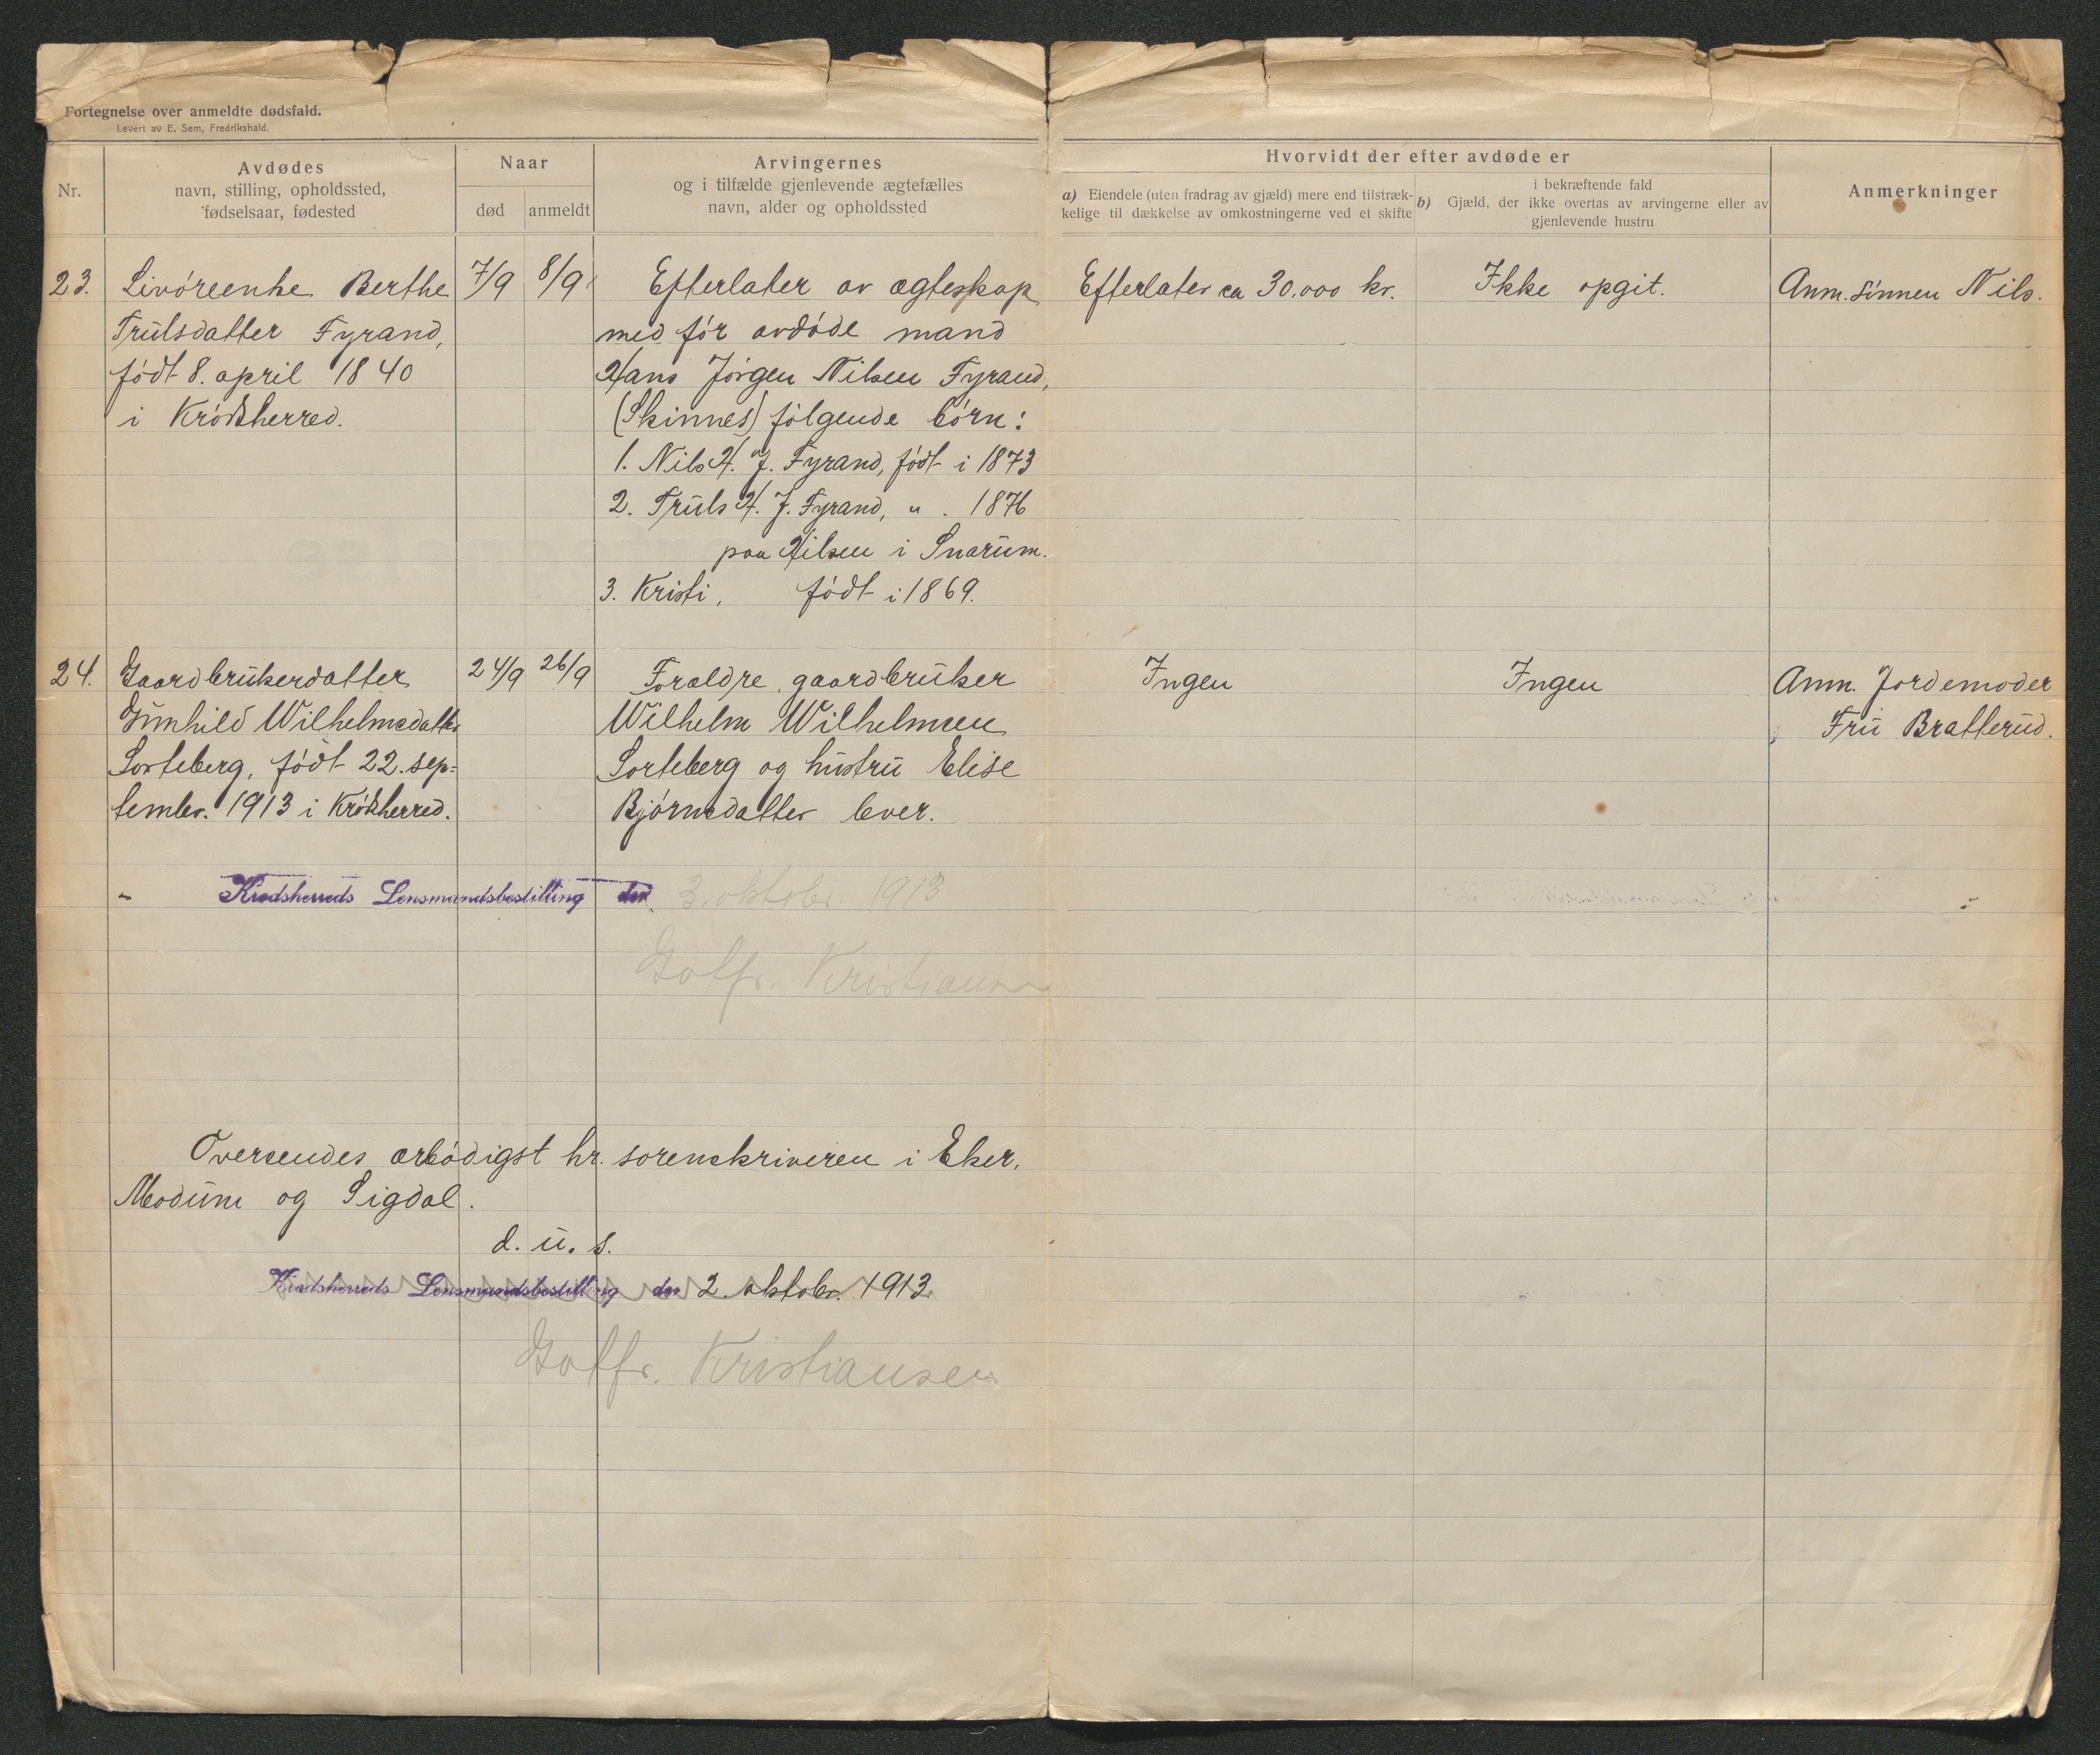 Fortegnelse over anmeldte dødsfald.
Levert av E. Sem, Fredrikshald.
Nr.
Avdødes
navn, stilling, opholdssted,
fødselsaar, fødested
Naar
død
anmeldt
Arvingernes
og i tilfælde gjenlevende ægtefælles
navn, alder og opholdssted
Hvorvidt der efter avdøde er
a) Eiendele (uten fradrag av gjæld) mere end tilstræk-
kelige til dækkelse av omkostningerne ved et skifte
i bekræftende fald
b) Gjæld, der ikke overtas av arvingerne eller av
gjenlevende hustru
Anmerkninger
23.
Livøreenke Berthe
Trulsdatter Fyrand,
født 8. april 1840
i Krødsherred.
7/9
8/9
Efterlater av ægteskap
med før avdøde mand
Hans Jørgen Nilsen Fyrand,
(Skinnes) følgende børn:
1. Nils H. J. Fyrand, født i 1873
2. Truls H. J. Fyrand, " . 1876
paa Hilsen i Snarum.
3. Kristi, født i 1869.
Efterlater ca 30.000 kr.
Ikke opgit.
Anm. sønnen Nils.
24.
Gaardbrukerdatter
Gunhild Wilhelmsdatter
Sorteberg, født 22. sep=
tember. 1913 i Krødsherred.
24/9
26/9
Forældre, gaardbruker
Wilhelm Wilhelmsen
Sorteberg og hustru Elise
Bjørnsdatter lever.
Ingen
Ingen
Anm. Jordemoder
Fru Bratterud.
Krødsherreds Lensmandsbestilling den 3. oktober. 1913
Gotfr. Kristiansen
Oversendes ærbødigst hr. sorenskriveren i Eker,
Modum og Sigdal.
d. u. s.
Krødsherreds Lensmandsbestilling den 2. oktober. 1913
Gotfr. Kristiansen